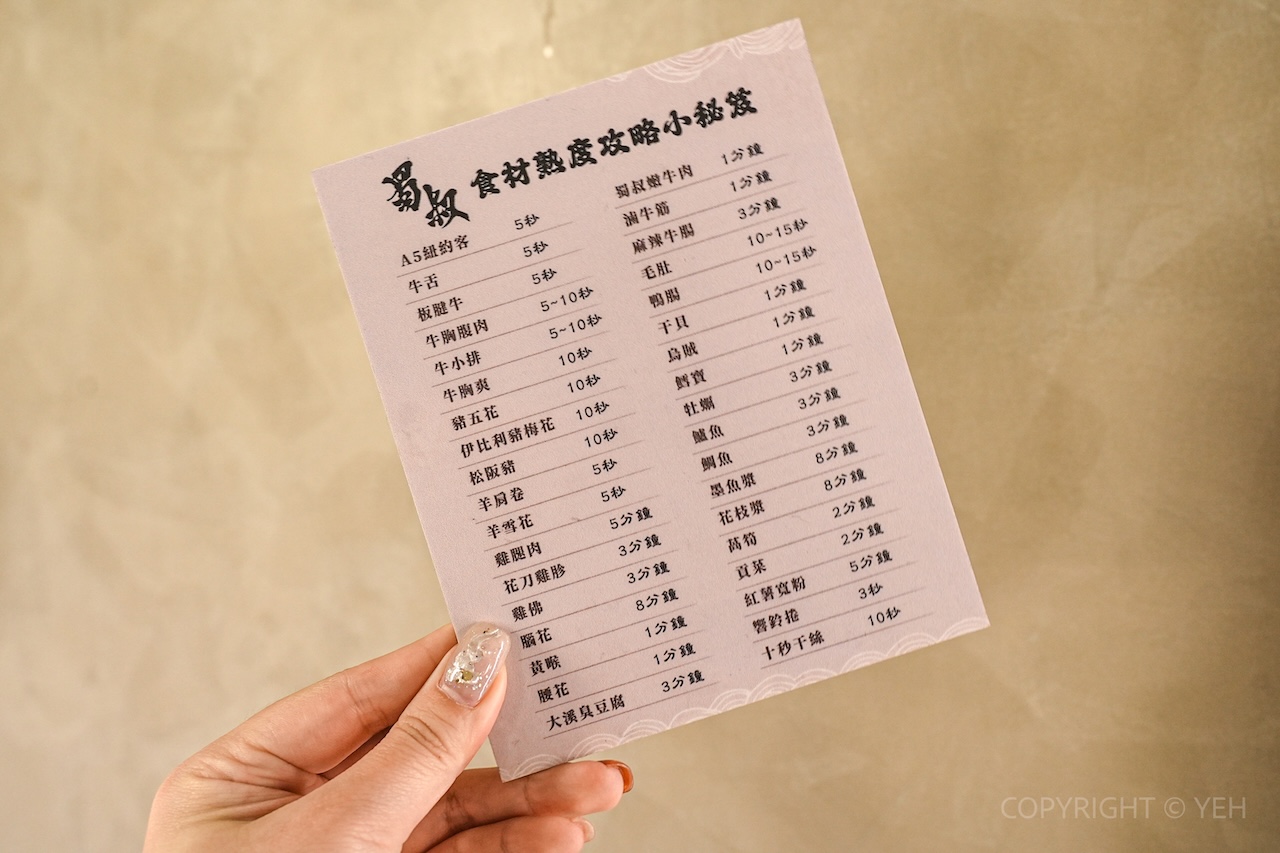 蜀叔 食材熟度攻略小秘笈
A5紐約客 5秒
牛舌 5秒
板腱牛 5秒
牛胸腹肉 5~10秒
牛小排 5~10秒
牛胸爽 10秒
豬五花 10秒
伊比利豬梅花 10秒
松阪豬 10秒
羊肩卷 5秒
羊雪花 5秒
雞腿肉 5分鐘
花刀雞胗 3分鐘
雞佛 3分鐘
腦花 8分鐘
黃喉 1分鐘
腰花 1分鐘
大溪臭豆腐 3分鐘
蜀叔嫩牛肉 1分鐘
滷牛筋 1分鐘
麻辣牛腸 3分鐘
毛肚 10~15秒
鴨腸 10~15秒
干貝 1分鐘
烏賊 1分鐘
鱈寶 1分鐘
牡蠣 3分鐘
鱸魚 3分鐘
鯛魚 3分鐘
墨魚漿 8分鐘
花枝漿 8分鐘
萵筍 2分鐘
貢菜 2分鐘
紅薯寬粉 5分鐘
響鈴捲 3秒
十秒干絲 10秒
COPYRIGHT © YEH